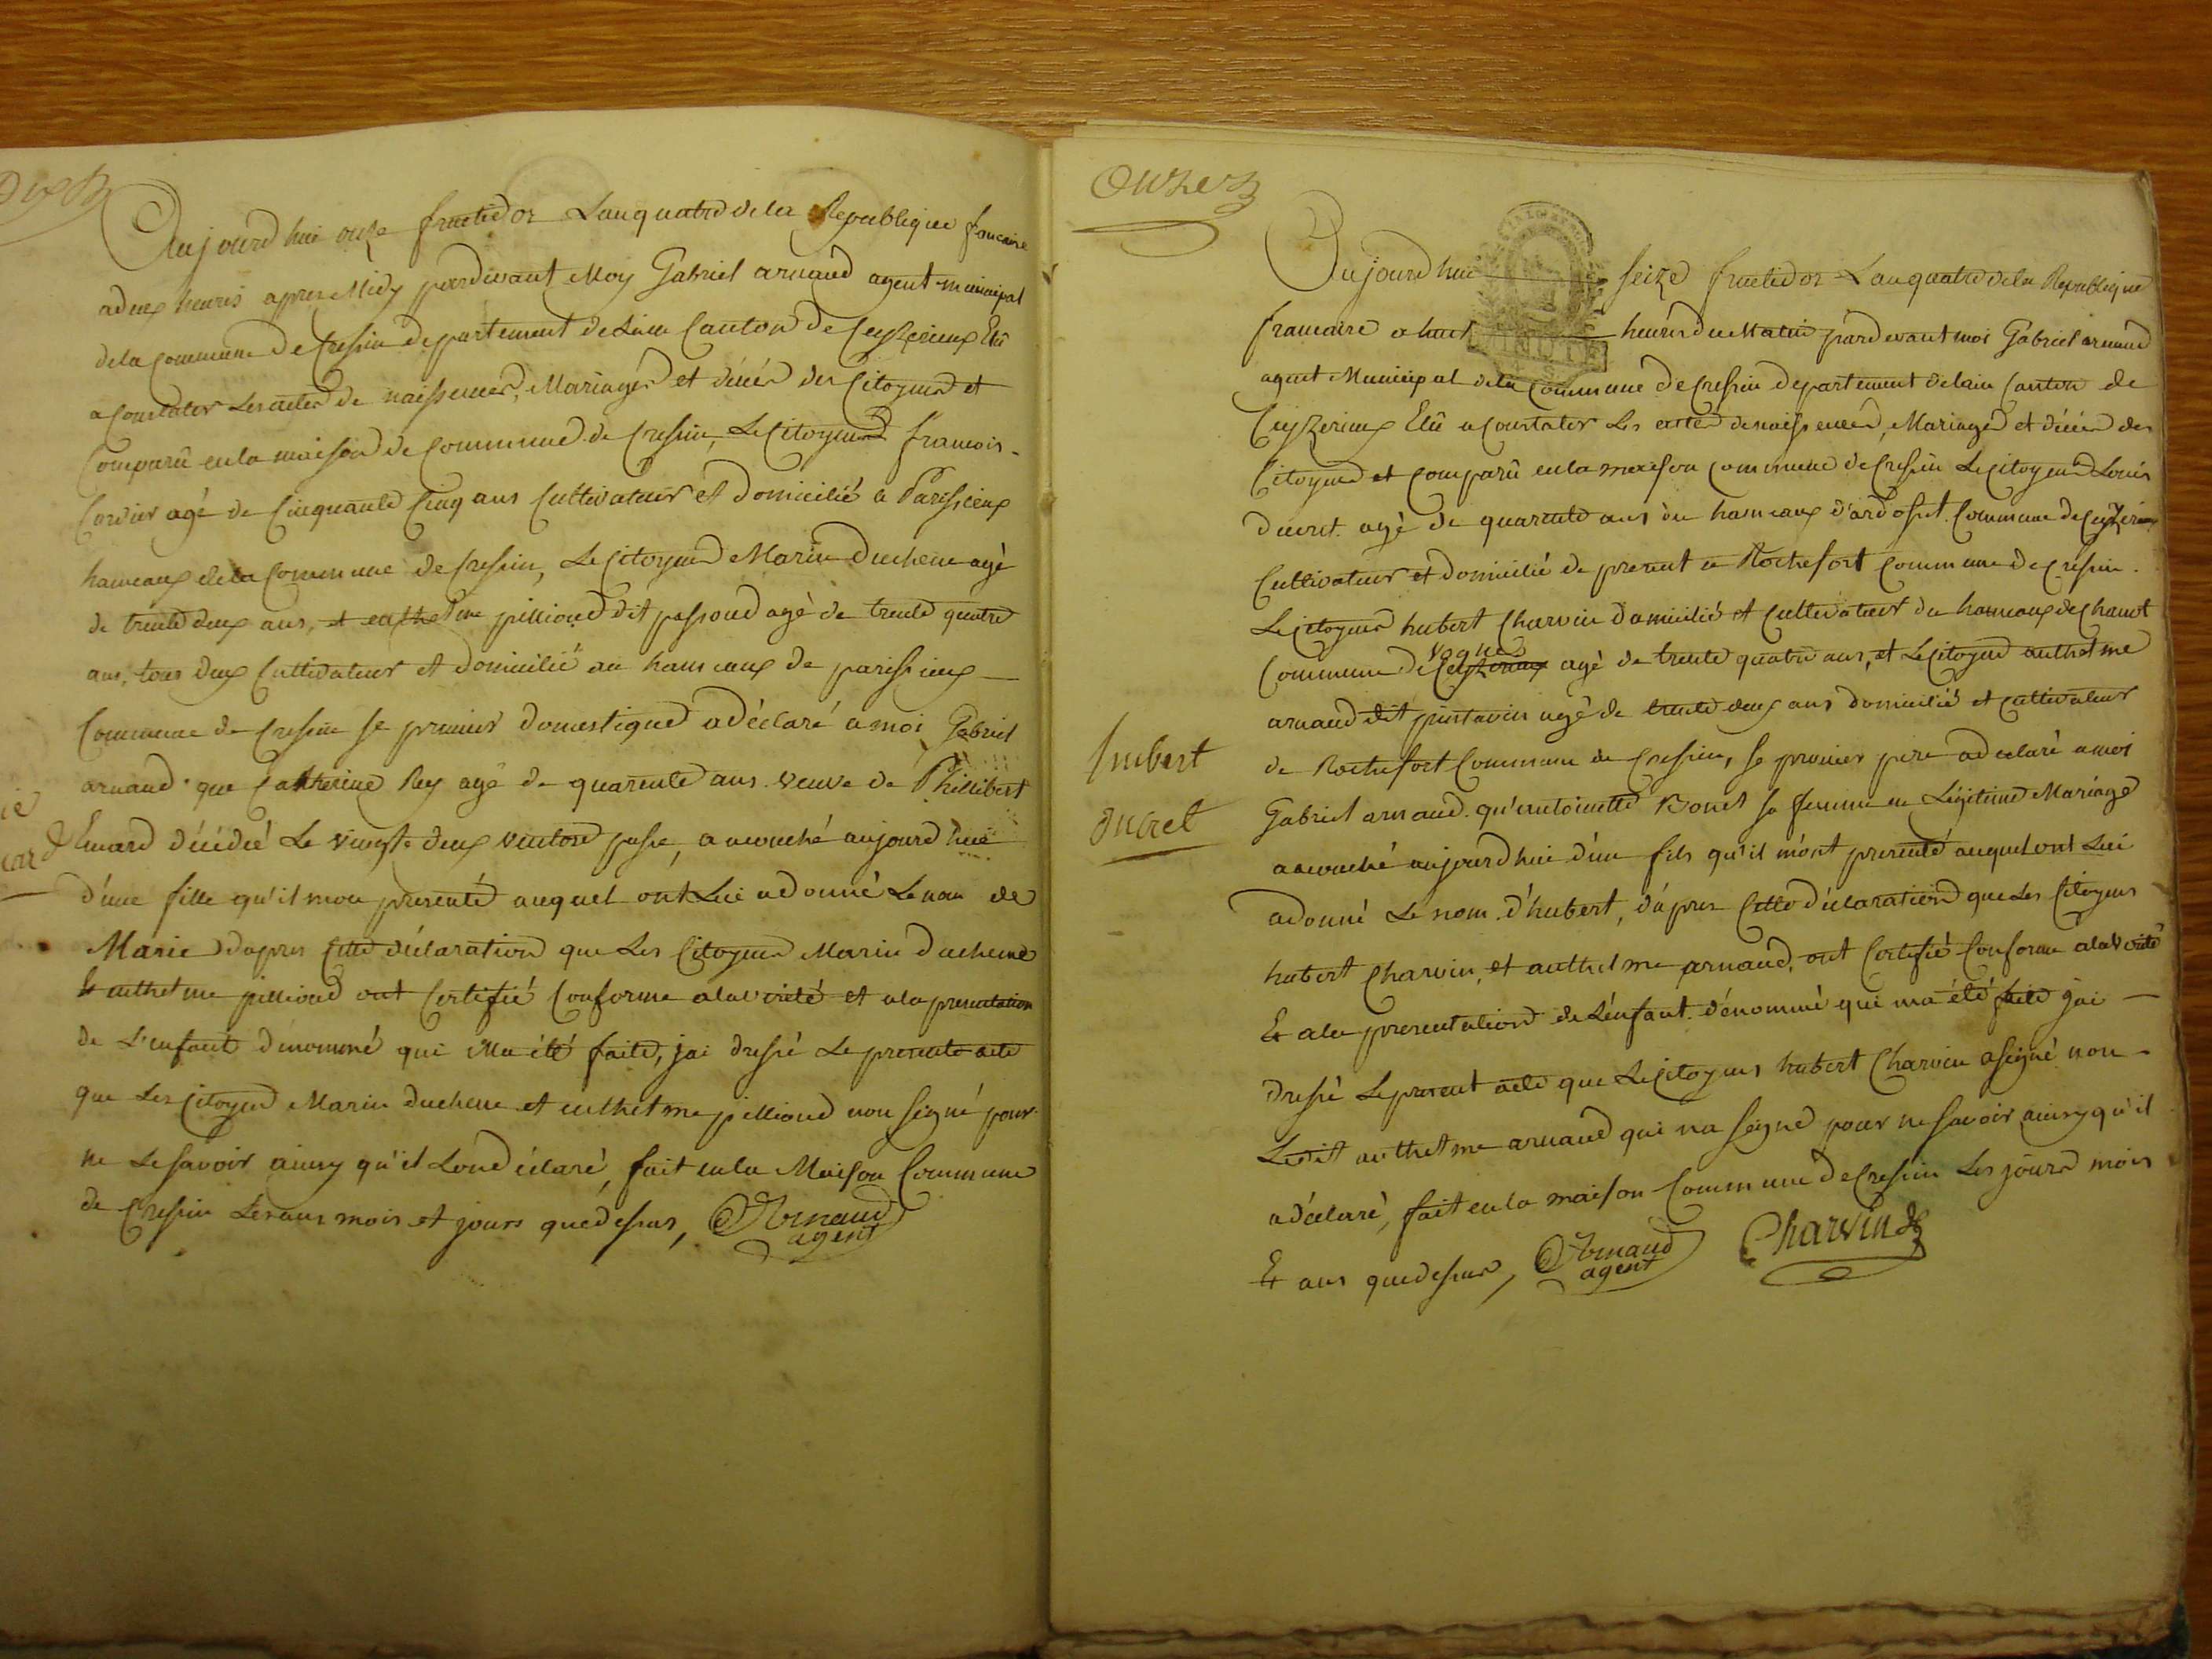 Dix
Aujourd hui onze fructidor Lan quatre de la Republique francaise
a deux heures apres Midy pardevant Moy Gabriel arnaud agent municipal
de la commune De Cressin departement de Lain Canton de Ceyzerieux Elû
a Constater Les actes de naissences, Mariages et décès des Citoyens et
Comparû en la maison de Commune de Cressin, Le Citoyens francois
Cordier agé de Cinquante Cinq ans Cultivateur et Domicilié a Parissieux
hameaux de la Commune de Cressin, Le Citoyens Marin Duchene agé
de trente deux ans, et enthelme pillioud dit passoud agé de trente quatre
ans, tous deux Cultivateur et domicilié au hameaux de parissieux
Commune de Cressin Le premier Domestique a déclaré a moi Gabriel
arnaud que Catherine Rey agé de quarente ans veuve de Phillibert
Emard décédé Le vingt deux ventose passé, a acouché aujourd hui
d'une fille qu'il mon presenté auquel ont Lui a donné Le nom de
Marie d'apres Cette déclaration que Les Citoyens Marin duchene
Et enthelme pillioud ont Certifié Conforme a la verité et a la presentation
de L'enfant dénommé qui Ma été faite, jai dressé Le presente acte
que Les Citoyens Marin Duchene et enthelme pillioud non signé pour
ne Le savoir ainsy qu'il Lon déclaré, fait en la Maison Commune
de Cressin Les ans mois et jours que dessus, Arnaud
agent
Onze
Aujourd hui seize fructidor Lan quatre de la Republique
francaise a huit heures du Matin pardevant moi Gabriel arnaud
MINUTE
agent Municipal de la Commune de Cressin departement de Lain Canton de
Ceyzerieux Elû a Constater Les actes de naissences, Mariages et décès des
Citoyens et Comparû en la maison Commune de Cressin Le Citoyens Louis
ducret agé de quarente ans du hameaux d'ardosset Commune de Ceyzerieux
Cultivateur et domicilié de present a Rochefort Commune de Cressin
Le Citoyens hubert Charvin domicilié et Cultivateur du hameaux de Chanet
vognes
Commune de Ceyzerieux agé de trente quatre ans, et Le Citoyens anthelme
arnaud dit pintavin agé de trente deux ans domicilié et Cultivateur
de Rochefort Commune de Cressin, Le premier pere a declaré a moi
hubert
ducret
Gabriel arnaud qu'antoinette Bonet sa femme en Légitime Mariage
a acouché aujourd hui d'un fils qu'il m'ont presenté auquel ont Lui
a donné Le nom d'hubert, d'apres Cette déclaration que Les Citoyens
hubert Charvin, et anthelme arnaud, ont Certifié Conforme a la verité
Et a la presentation de Lénfant dénommé qui ma été faite jai
dressé Le present acte que Le Citoyens hubert Charvin a signé non
Ledit anthelme arnaud qui na signé pour ne savoir ainsy qu'il
a déclaré, fait en la maison Commune de Cressin Les jours mois
Et ans que dessus, Arnaud Charvin
agent